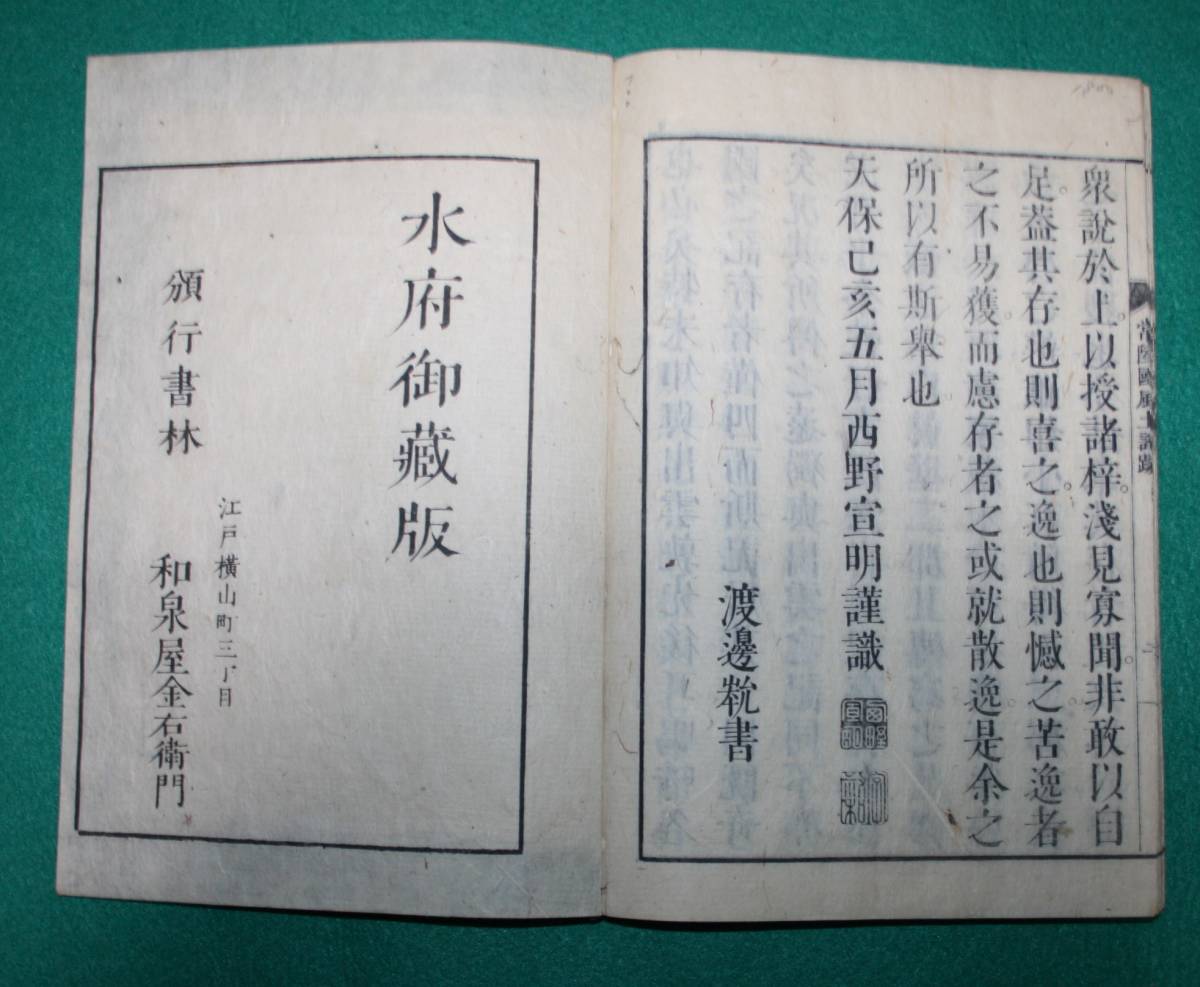 衆說於上以授諸梓淺見寡聞非敢以自
足葢其存也則喜之逸也則憾之苦逸者
之不易獲而慮存者之或就散逸是余之
所以有斯舉也
天保己亥五月西野宣明謹識
渡邊㲄書
水府御藏版
頒行書林
江戸橫山町三丁目
和泉屋金右衛門